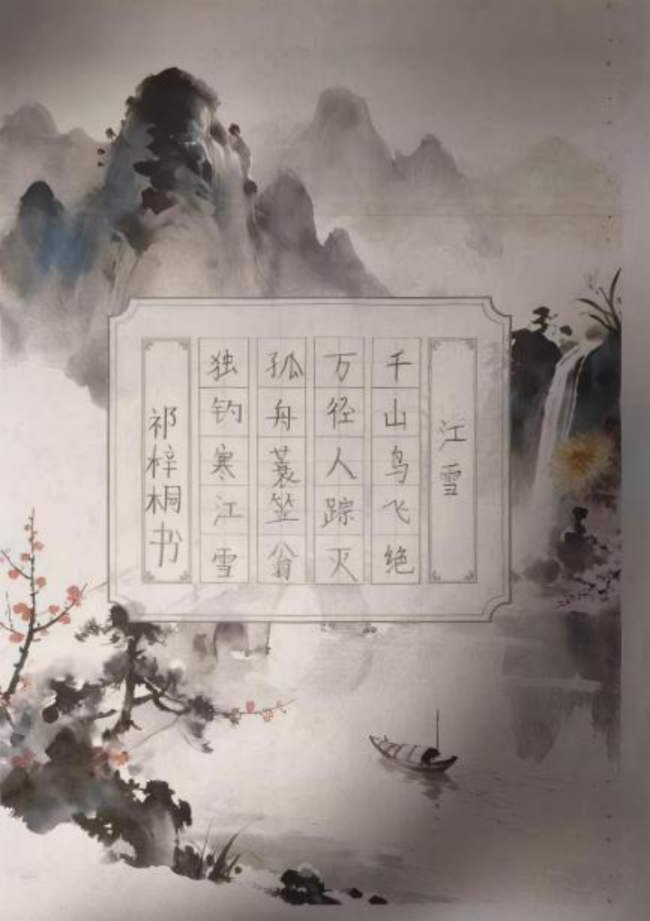 江雪
千山鸟飞绝
万径人踪灭
孤舟蓑笠翁
独钓寒江雪
祁梓桐书